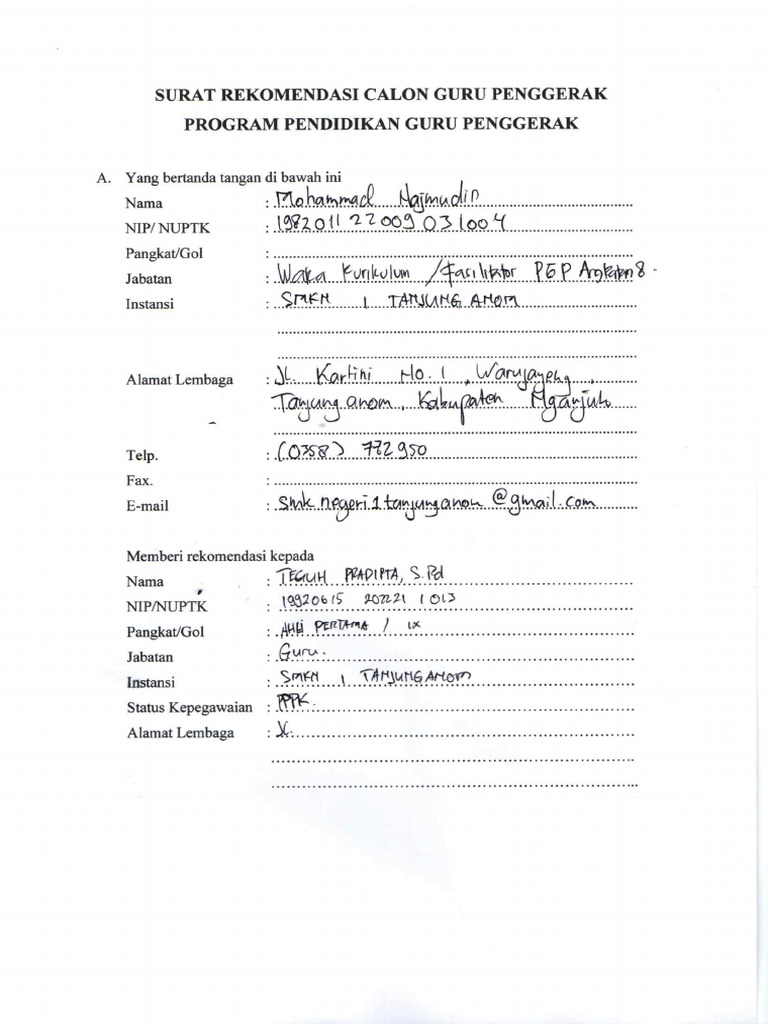 SURAT REKOMENDASI CALON GURU PENGGERAK
PROGRAM PENDIDIKAN GURU PENGGERAK
A. Yang bertanda tangan di bawah ini
Nama : Mohammad Najmudin
NIP/ NUPTK : 19820112 2009 03 1 004
Pangkat/Gol :
Jabatan : Waka Kurikulum / Fasilitator PGP Angkatan 8
Instansi : SMKN 1 TANJUNGANOM
Alamat Lembaga : Jl. Kartini No. 1, Warujayeng,
Tanjunganom, Kabupaten Nganjuk
Telp. : (0358) 772950
Fax. :
E-mail : smknegeri1tanjunganom@gmail.com
Memberi rekomendasi kepada
Nama : TEGUH PRADIPTA, S.Pd
NIP/NUPTK : 19920615 202221 1 013
Pangkat/Gol : AHLI PERTAMA / IX
Jabatan : Guru.
Instansi : SMKN 1 TANJUNGANOM
Status Kepegawaian : PPPK.
Alamat Lembaga :